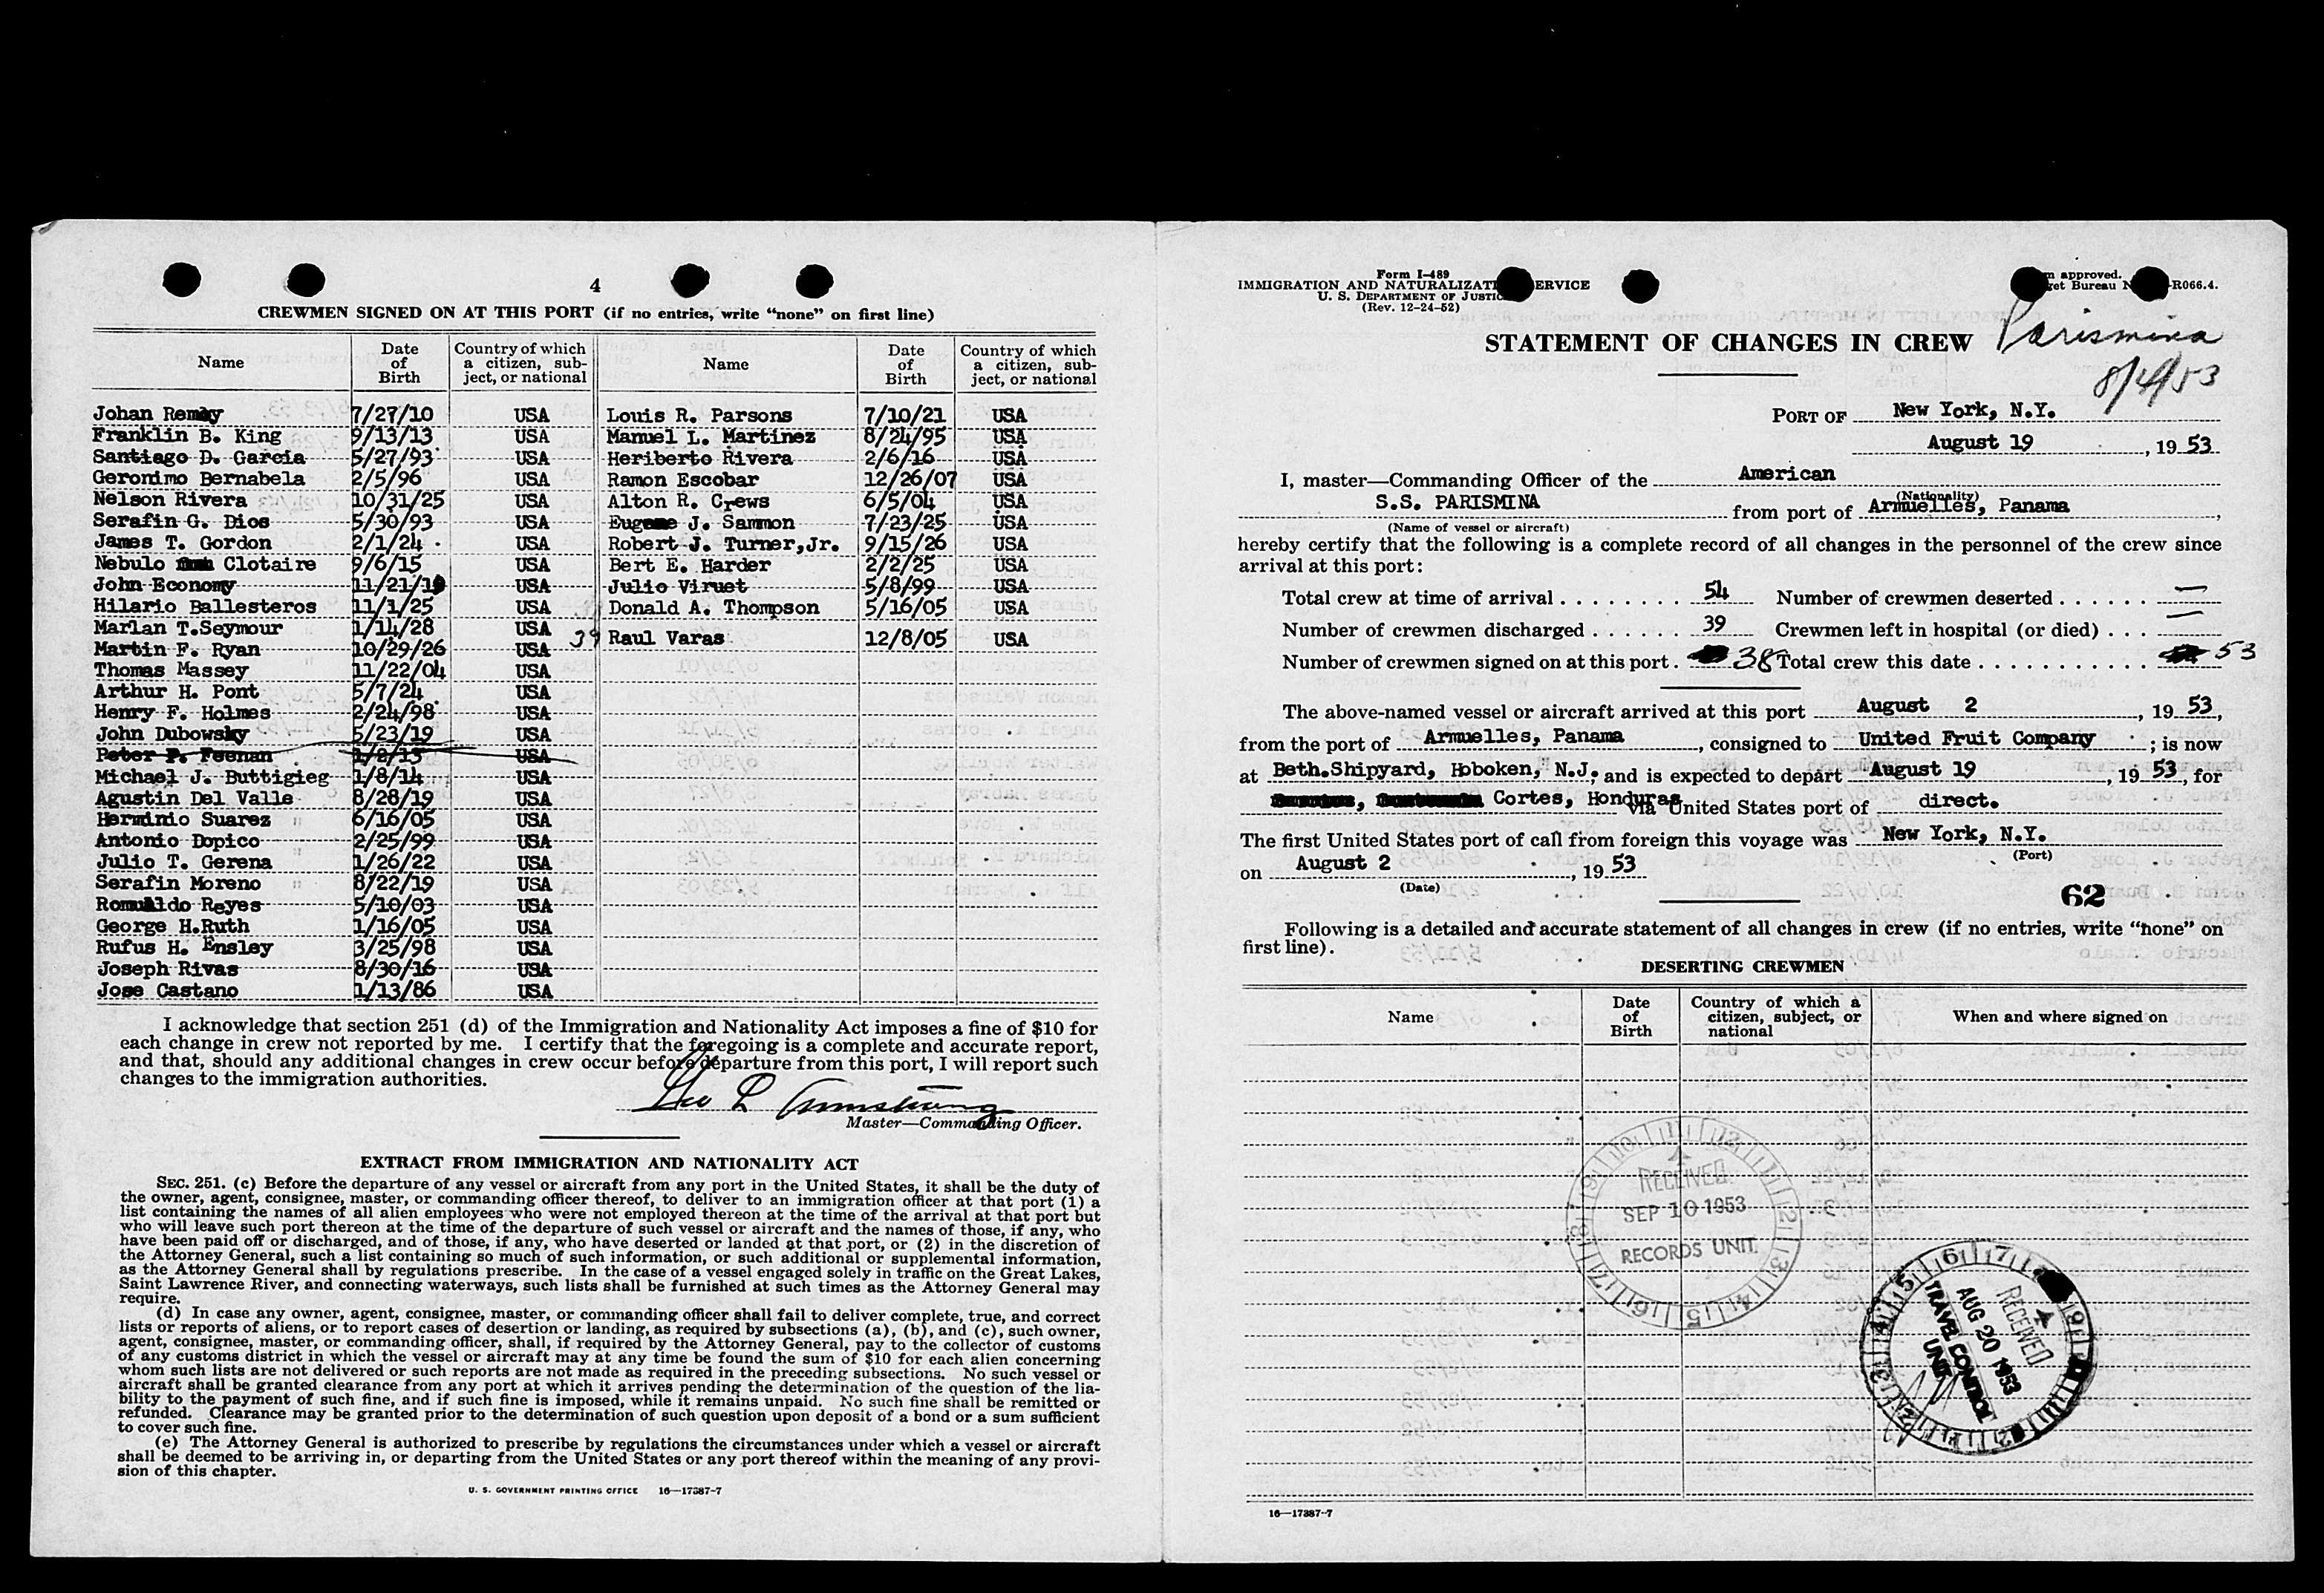 4
CREWMEN SIGNED ON AT THIS PORT (if no entries, write “none” on first line)
Name Date of Birth Country of which a citizen, subject, or national Name Date of Birth Country of which a citizen, subject, or national
Johan Remay 7/27/10 USA Louis R. Parsons 7/10/21 USA
Franklin B. King 9/13/13 USA Manuel L. Martinez 8/24/95 USA
Santiago D. Garcia 5/27/93 USA Heriberto Rivera 2/6/16 USA
Geronimo Bernabela 2/5/96 USA Ramon Escobar 12/26/07 USA
Nelson Rivera 10/31/25 USA Alton R. Crews 6/5/04 USA
Serafin G. Dios 5/30/93 USA Eugene J. Sammon 7/23/25 USA
James T. Gordon 2/1/24 USA Robert J. Turner,Jr. 9/15/26 USA
Nebulo Clotaire 9/6/15 USA Bert E. Harder 2/2/25 USA
John Economy 11/21/19 USA Julio Viruet 5/8/99 USA
Hilario Ballesteros 11/1/25 USA Donald A. Thompson 5/16/05 USA
Marlan T.Seymour 1/14/28 USA 39 Raul Varas 12/8/05 USA
Martin F. Ryan 10/29/26 USA
Thomas Massey 11/22/04 USA
Arthur H. Pont 5/7/24 USA
Henry F. Holmes 2/24/98 USA
John Dubowsky 5/23/19 USA
Peter P. Feenan 1/2/13 USA
Michael J. Buttigieg 1/8/14 USA
Agustin Del Valle 8/28/19 USA
Herminio Suarez 6/16/05 USA
Antonio Dopico 2/25/99 USA
Julio T. Gerena 1/26/22 USA
Serafin Moreno 8/22/19 USA
Romualdo Reyes 5/10/03 USA
George H.Ruth 1/16/05 USA
Rufus H. Ensley 3/25/98 USA
Joseph Rivas 8/30/16 USA
Jose Castano 1/13/86 USA
I acknowledge that section 251 (d) of the Immigration and Nationality Act imposes a fine of $10 for
each change in crew not reported by me. I certify that the foregoing is a complete and accurate report,
and that, should any additional changes in crew occur before departure from this port, I will report such
changes to the immigration authorities.
Geo L Armstrong
Master—Commanding Officer.
EXTRACT FROM IMMIGRATION AND NATIONALITY ACT
SEC. 251. (c) Before the departure of any vessel or aircraft from any port in the United States, it shall be the duty of
the owner, agent, consignee, master, or commanding officer thereof, to deliver to an immigration officer at that port (1) a
list containing the names of all alien employees who were not employed thereon at the time of the arrival at that port but
who will leave such port thereon at the time of the departure of such vessel or aircraft and the names of those, if any, who
have been paid off or discharged, and of those, if any, who have deserted or landed at that port, or (2) in the discretion of
the Attorney General, such a list containing so much of such information, or such additional or supplemental information,
as the Attorney General shall by regulations prescribe. In the case of a vessel engaged solely in traffic on the Great Lakes,
Saint Lawrence River, and connecting waterways, such lists shall be furnished at such times as the Attorney General may
require.
(d) In case any owner, agent, consignee, master, or commanding officer shall fail to deliver complete, true, and correct
lists or reports of aliens, or to report cases of desertion or landing, as required by subsections (a), (b), and (c), such owner,
agent, consignee, master, or commanding officer, shall, if required by the Attorney General, pay to the collector of customs
of any customs district in which the vessel or aircraft may at any time be found the sum of $10 for each alien concerning
whom such lists are not delivered or such reports are not made as required in the preceding subsections. No such vessel or
aircraft shall be granted clearance from any port at which it arrives pending the determination of the question of the lia-
bility to the payment of such fine, and if such fine is imposed, while it remains unpaid. No such fine shall be remitted or
refunded. Clearance may be granted prior to the determination of such question upon deposit of a bond or a sum sufficient
to cover such fine.
(e) The Attorney General is authorized to prescribe by regulations the circumstances under which a vessel or aircraft
shall be deemed to be arriving in, or departing from the United States or any port thereof within the meaning of any provi-
sion of this chapter.
U. S. GOVERNMENT PRINTING OFFICE 16—17387-7
Form I-489
IMMIGRATION AND NATURALIZATI ERVICE
U. S. DEPARTMENT OF JUSTIC
(Rev. 12-24-52)
m approved.
get Bureau N -R066.4.
STATEMENT OF CHANGES IN CREW
Parismina
8/4/53
PORT OF New York, N.Y.
August 19, 19 53
I, master—Commanding Officer of the American
(Nationality)
S.S. PARISMINA from port of Armuelles, Panama,
(Name of vessel or aircraft)
hereby certify that the following is a complete record of all changes in the personnel of the crew since
arrival at this port:
Total crew at time of arrival 54 Number of crewmen deserted —
Number of crewmen discharged 39 Crewmen left in hospital (or died) —
Number of crewmen signed on at this port 38 Total crew this date 53
The above-named vessel or aircraft arrived at this port August 2, 19 53,
from the port of Armuelles, Panama, consigned to United Fruit Company; is now
at Beth.Shipyard, Hoboken, N.J. and is expected to depart August 19, 19 53, for
Cortes, Honduras via United States port of direct.
The first United States port of call from foreign this voyage was New York, N.Y.
(Port)
on August 2, 19 53
(Date)
62
Following is a detailed and accurate statement of all changes in crew (if no entries, write “none” on
first line).
DESERTING CREWMEN
Name Date of Birth Country of which a citizen, subject, or national When and where signed on
RECEIVED
SEP 10 1953
RECORDS UNIT
RECEIVED
AUG 20 1953
TRAVEL CONTROL
UNIT
16—17387-7